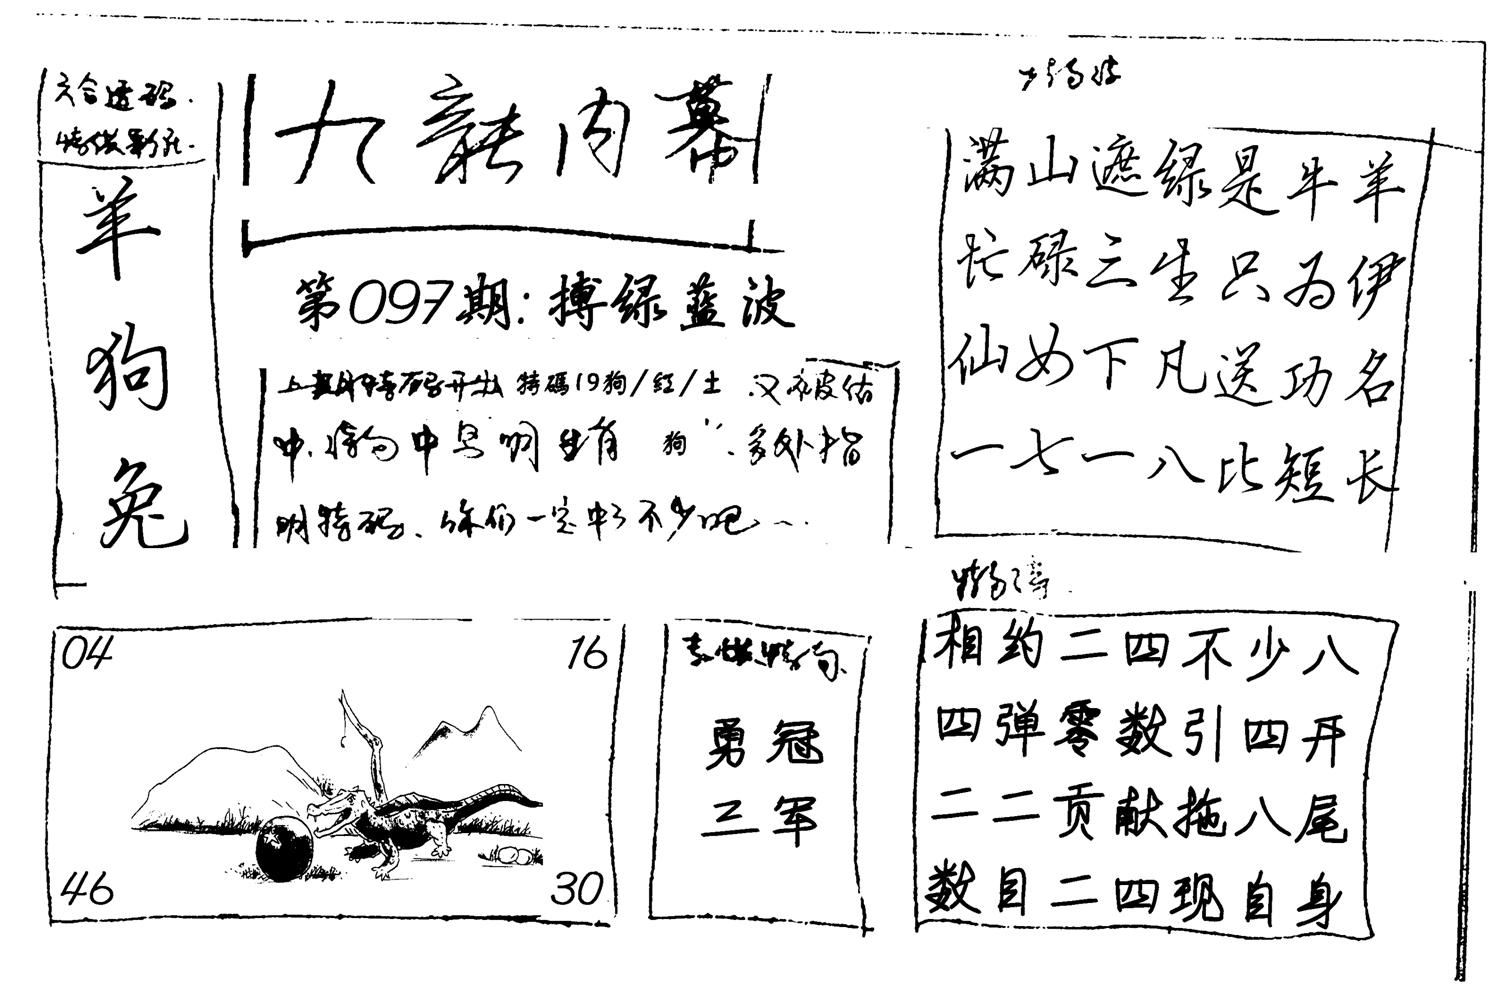 六合透码.
九龍内幕
羊
狗
兔
第097期:搏绿蓝波
上期特码开出 特碼19狗/红/土
中 生肖 狗 多处指
明特码、你们一定中了不少吧
满山遮绿是牛羊
忙碌三生只为伊
仙女下凡送功名
一七一八比短长
04
16
46
30
勇冠
三军
相约二四不少八
四弹零数引四开
二二贡献拖八尾
数目二四现自身